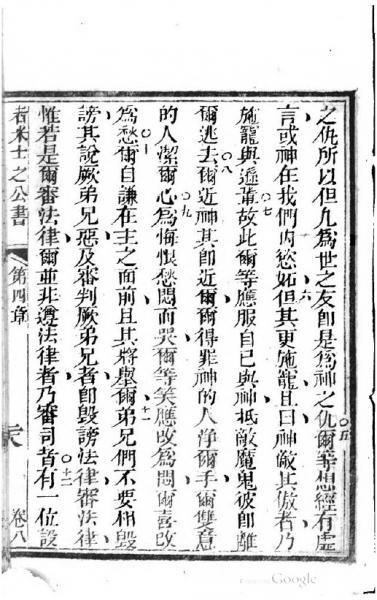 之仇所以但凡為世之友卽是為神之仇爾等想經有虛
○五
言或神在我們內慾妬但其更施寵且曰神敵其傲者乃
○六
施寵與遜輩故此爾等應服自己與神抵敵魔鬼彼卽離
○七
爾逃去爾近神其卽近爾爾得罪神的人淨爾手爾雙意
○八
的人潔爾心為悔恨愁悶而哭爾等笑應改為悶爾喜改
○九
為愁爾自謙在主之面前且其將舉爾弟兄們不要相毀
○十
十一
謗其說厥弟兄惡及審判厥弟兄者卽毀謗法律審法律
惟若是爾審法律爾並非遵法律者乃審司者有一位設
○十二
者米士之公書
第四章
卷八
Google